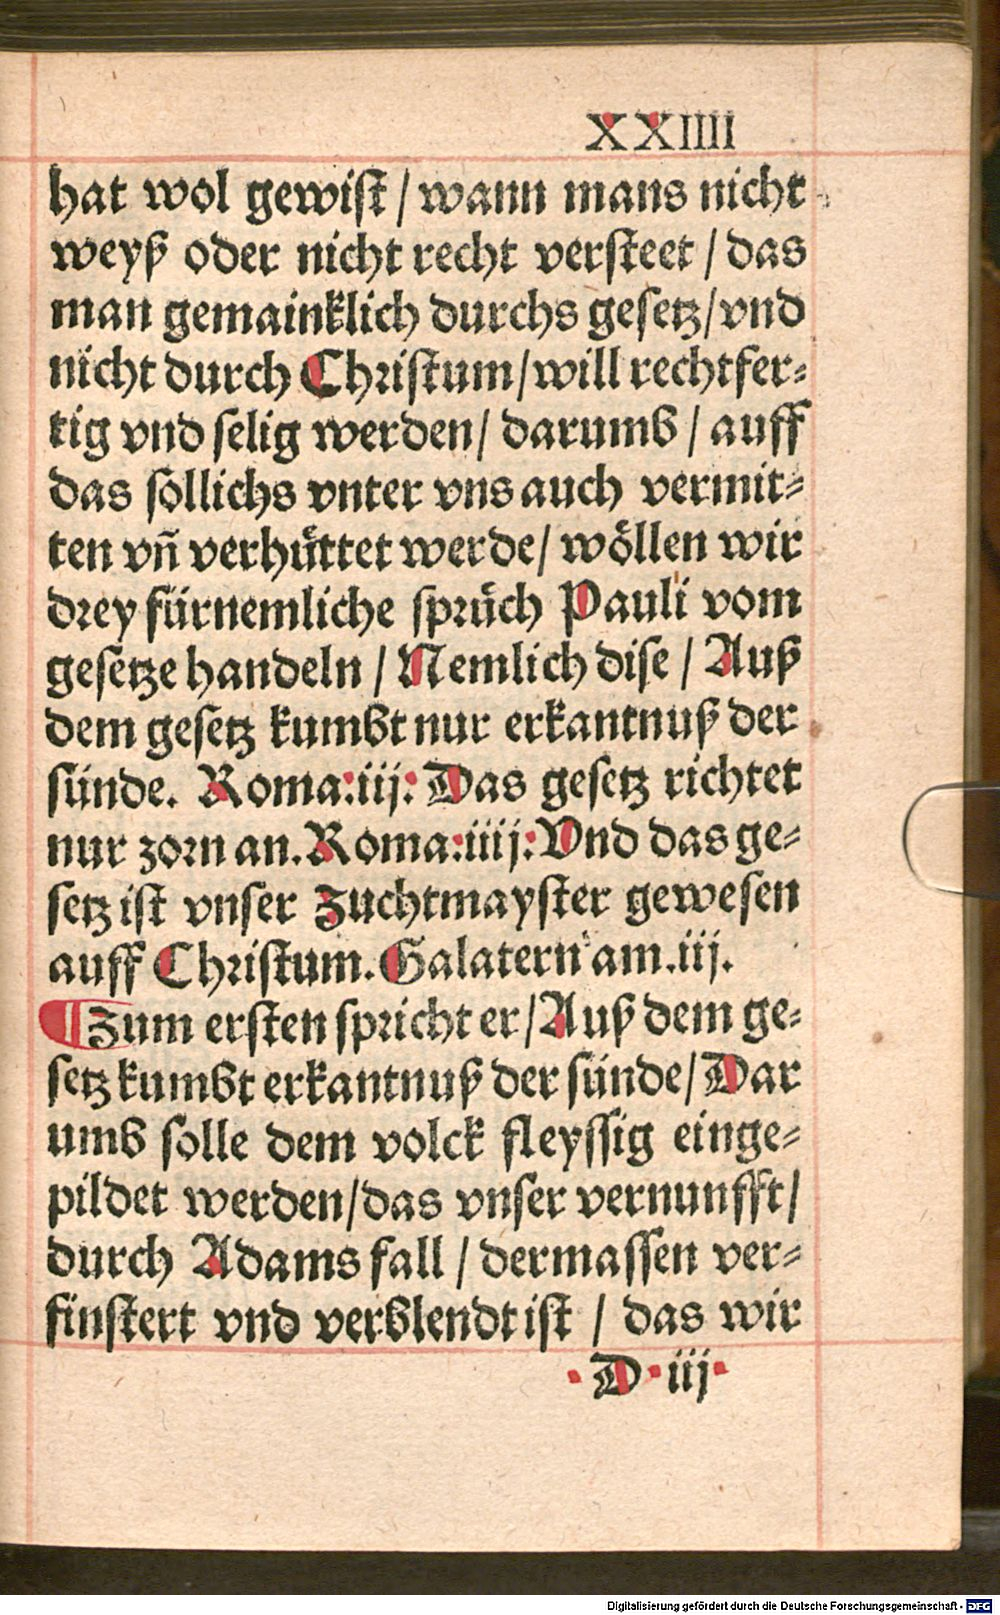 XXIIII
hat wol gewist / wann mans nicht
weyß oder nicht recht versteet / das
man gemainklich durchs gesetz / vnd
nicht durch Christum / will rechtfer⸗
tig vnd selig werden / darumb / auff
das sollichs vnter vns auch vermit⸗
ten vñ verhuͤttet werde / woͤllen wir
drey fürnemliche spruͤch Pauli vom
gesetze handeln / Nemlich dise / Auß
dem gesetz kumbt nur erkantnuß der
sünde. Roma:iij: Das gesetz richtet
nur zorn an. Roma:iiij: Vnd das ge⸗
setz ist vnser Zuchtmayster gewesen
auff Christum. Galatern am.iij.
¶ Zum ersten spricht er / Auß dem ge⸗
setz kumbt erkantnuß der sünde / Dar
umb solle dem volck fleyssig einge⸗
pildet werden / das vnser vernunfft /
durch Adams fall / dermassen ver⸗
finstert vnd verblendt ist / das wir
·D·iij·
Digitalisierung gefördert durch die Deutsche Forschungsgemeinschaft - DFG